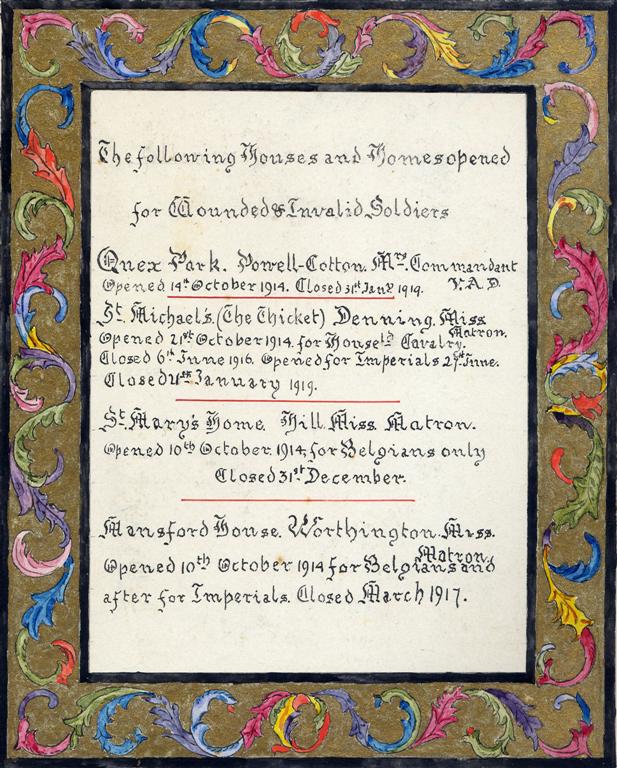 The following Houses and Homes opened
for Wounded & Invalid Soldiers
Quex Park. Powell-Cotton. Mrs. Commandant
Opened 14th October 1914. Closed 31st Jany. 1919. V.A.D.
St. Michael's. (The Thicket) Denning. Miss
Matron.
Opened 21st October 1914. for Househd. Cavalry.
Closed 6th June 1916. Opened for Imperials 27th June.
Closed January 1919.
St. Mary's Home. Hill. Miss. Matron.
Opened 10th October. 1914, for Belgians only
Closed 31st December.
Mansford House. Worthington. Miss.
Matron.
Opened 10th October 1914 for Belgians and
after for Imperials. Closed March 1917.